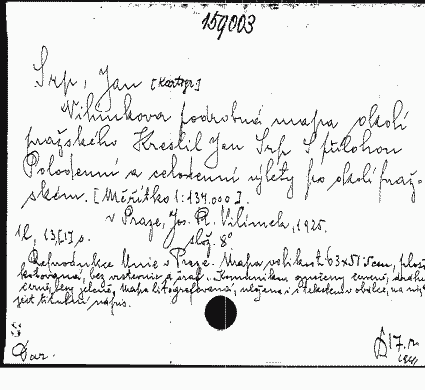 159003
Srp, Jan [kartogr]
Vilímkova podrobná mapa okolí
pražského Kreslil Jan Srp S přílohou
Polodenní a celodenní výlety po okolí praž-
ském. [Měřítko 1:134.000].
v Praze, Jos. R. Vilímek, 1925.
1 l, 13, [I] s. slož. 8°
Reprodukce Unie v Praze. Mapa velikosti 63x51'5cm,
kolorovaná, bez vrstevnic a šraf. Komunikace označeny červeně,
černě, lesy zeleně, Mapa litografovaná, vložena i s textem v obálce, na níž
jest titulní nápis.
S
Dar.
17. r.
1941